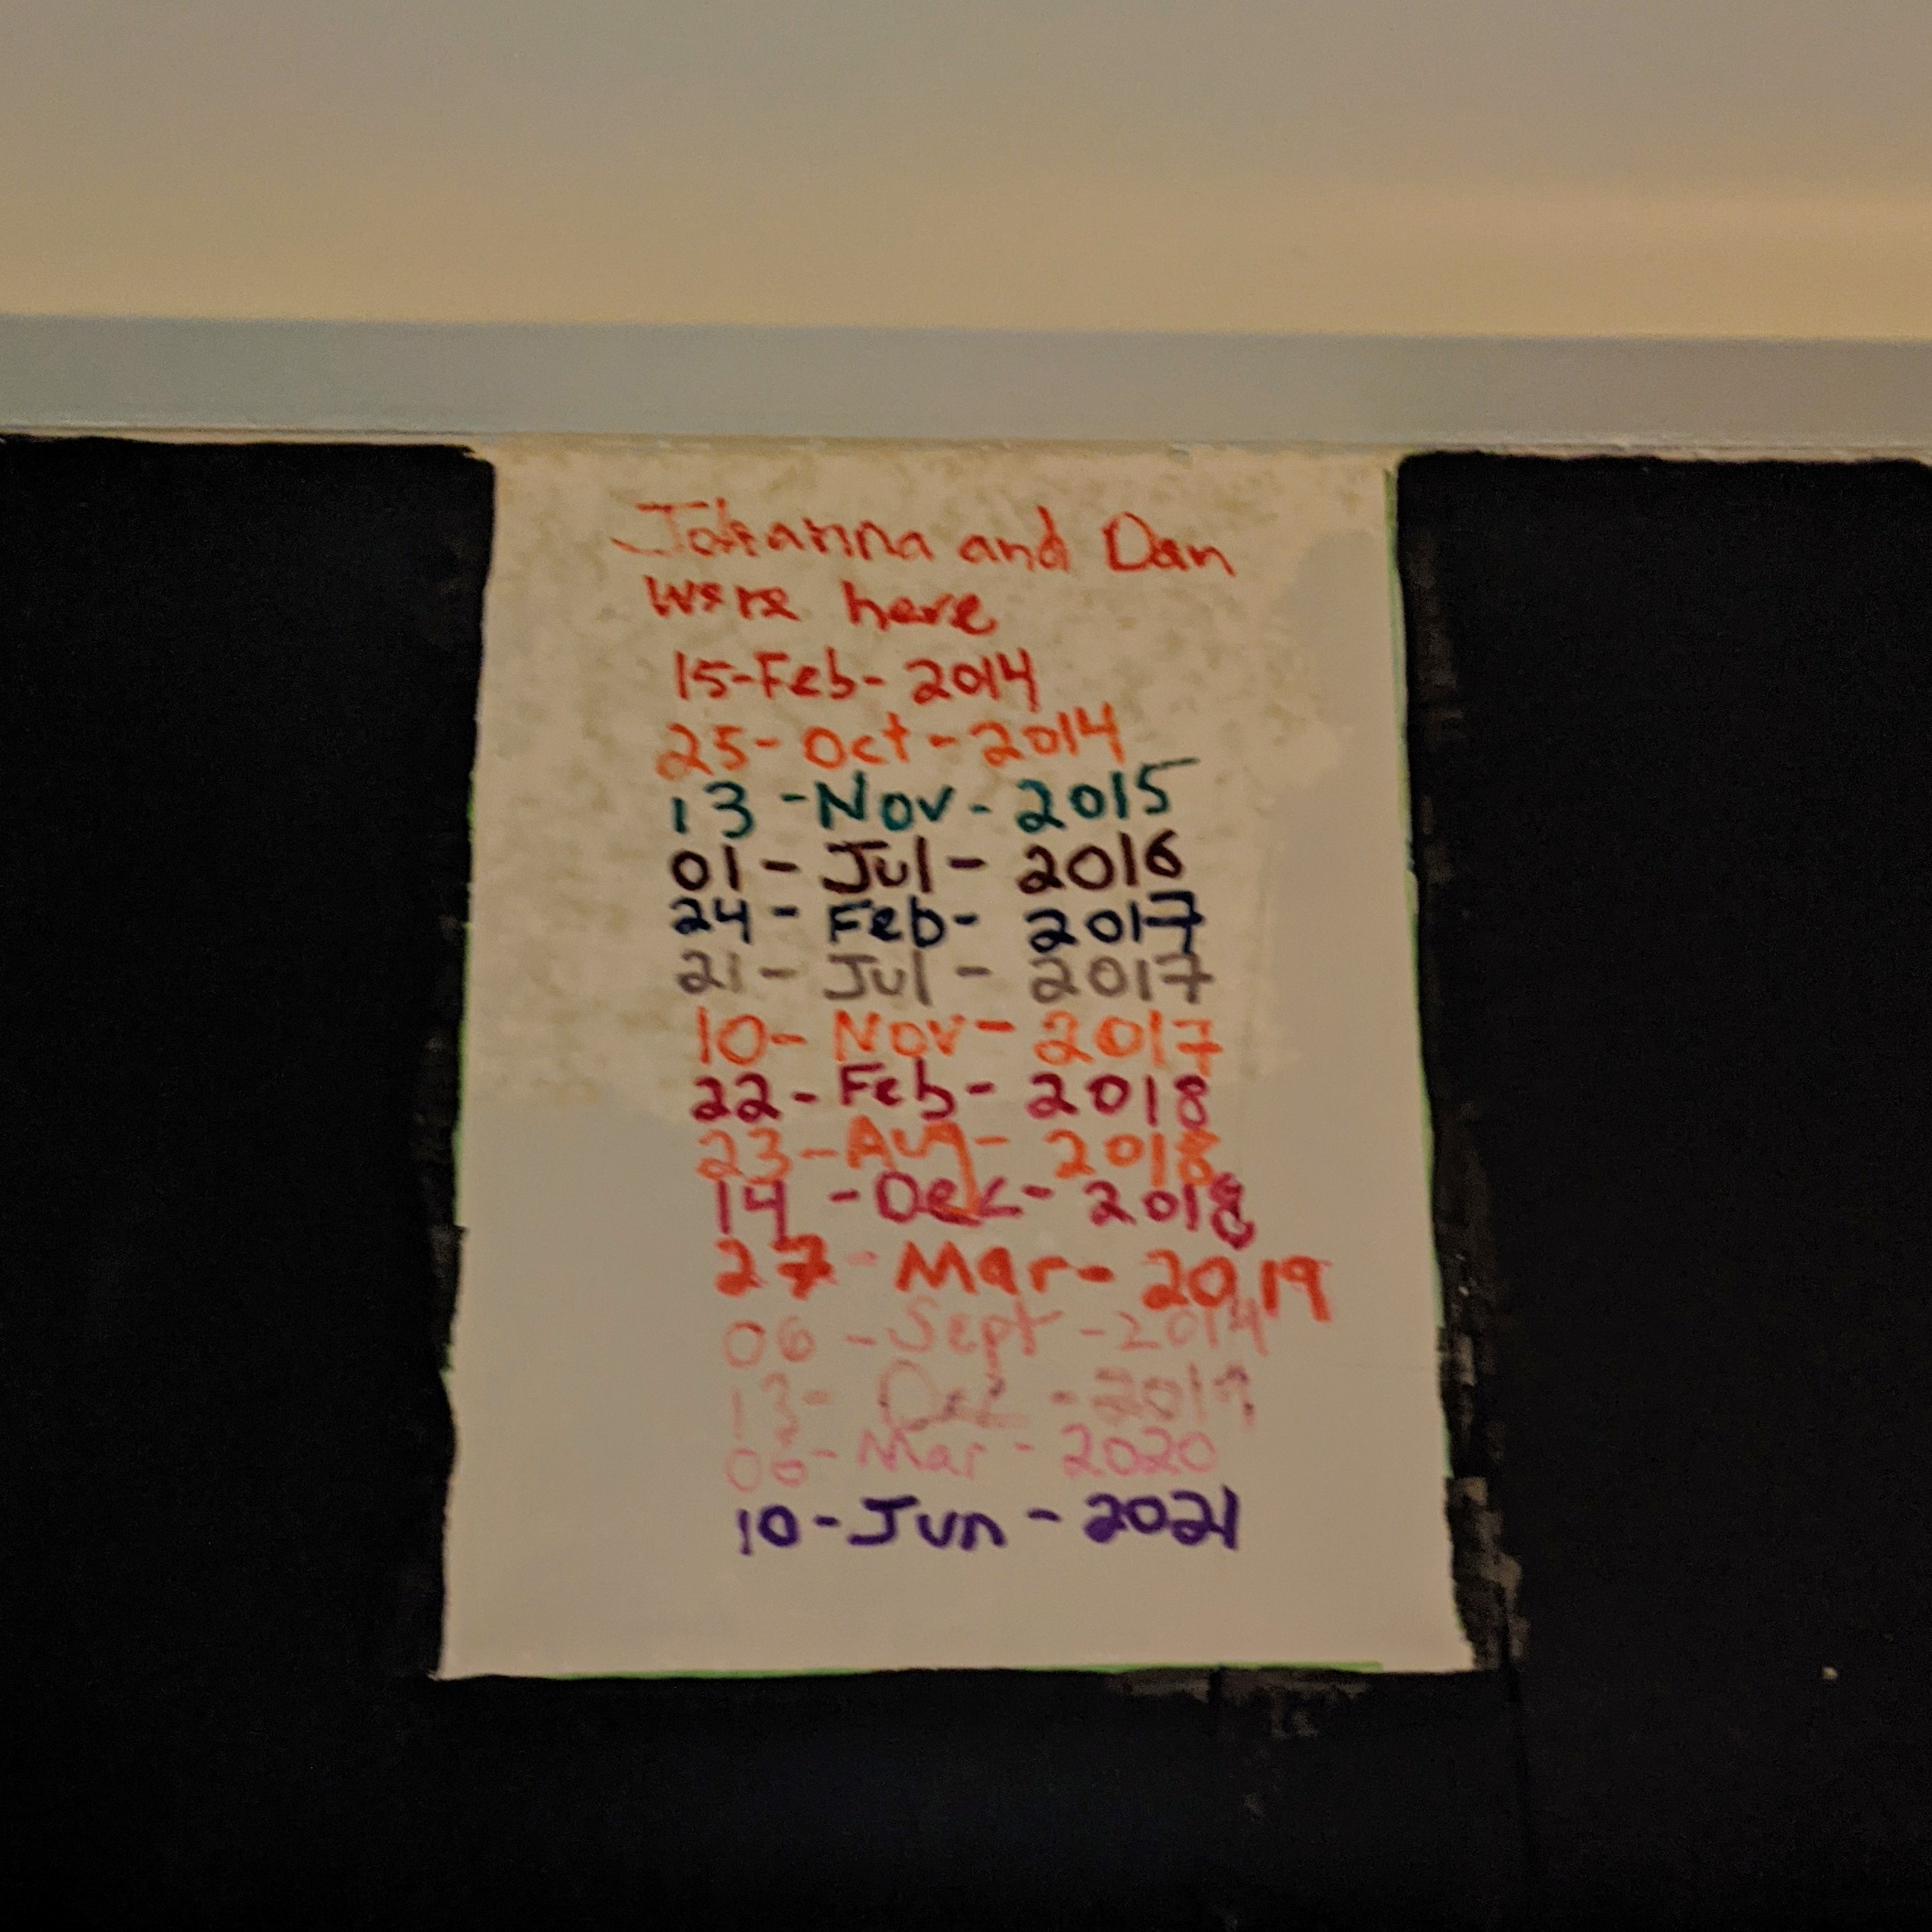 Johanna and Dan
were here
15-Feb-2014
25-Oct-2014
13-Nov-2015
01-Jul-2016
24-Feb-2017
21-Jul-2017
10-Nov-2017
22-Feb-2018
23-Aug-2018
14-Dec-2018
27-Mar-2019
06-Sept-2019
13-Dec-2019
06-Mar-2020
10-Jun-2021